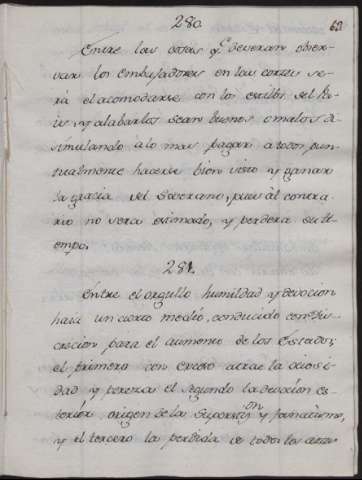 280.
63
Entre las cosas q.e deveran obser-
var los Embajadores en las cortes se-
rá el acomodarse con los estilos del Pa-
is, y alabarlos sean buenos o malos di-
simulando a lo mas pagar a todos pun-
tualmente hacerse bien visto y ganar
la gracia del Soverano, pues al contra-
rio no será estimado, y perdera su ti-
empo.
281.
Entre el orgullo humildad y devocion
hará un cierto medio, conducido con dis-
crecion para el aumento de los Estados;
el primero con exceso atrae la ociosi-
dad y pereza el segundo la devocion es-
terior, origen de la Supersti.on y fanatismo,
y el tercero la perdida de todos los